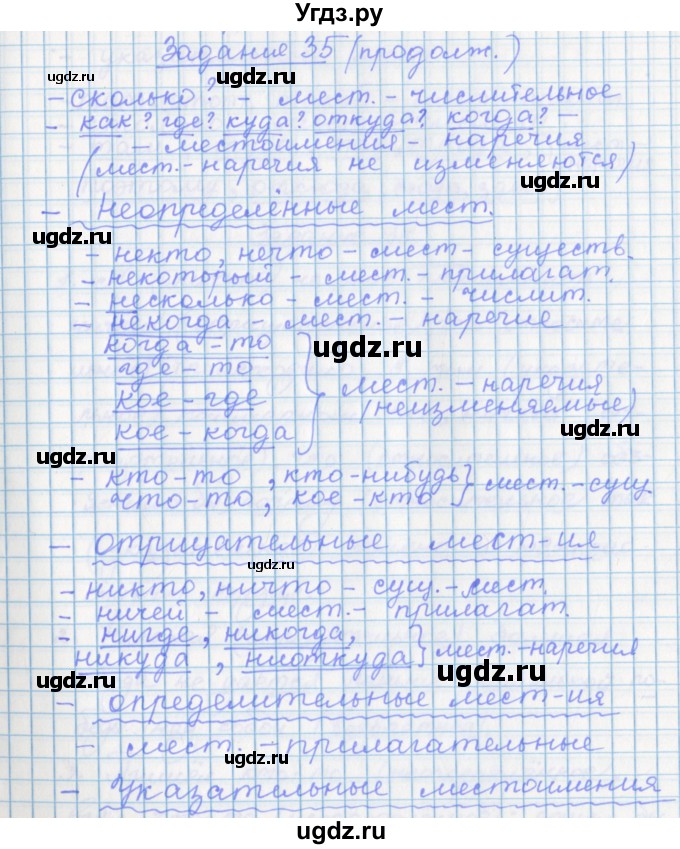 Угдз.ру
Задание 35 (продолж.)
- сколько? - мест. - числительное
- как? где? куда? откуда? когда? -
- местоимения - наречия
(мест.- наречия не изменяются)
- Неопределённые мест.
- некто, нечто - мест - существ.
- некоторый - мест. - прилагат.
- несколько - мест. - числит.
- некогда - мест. - наречие
когда - то
где - то
кое - где
кое - когда
мест. - наречия
(неизменяемые)
- кто-то, кто-нибудь
что-то, кое-кто
мест.-сущ.
- отрицательные мест-ия
- никто, ничто - сущ.-мест.
- ничей - мест. - прилагат.
- нигде, никогда,
никуда, ниоткуда
мест.-наречия
- определительные мест-ия
- мест. - прилагательные
- Указательные местоимения
ugdz.ru
ugdz.ru
ugdz.ru
ugdz.ru
ugdz.ru
ugdz.ru
ugdz.ru
ugdz.ru
ugdz.ru
ugdz.ru
ugdz.ru
ugdz.ru
ugdz.ru